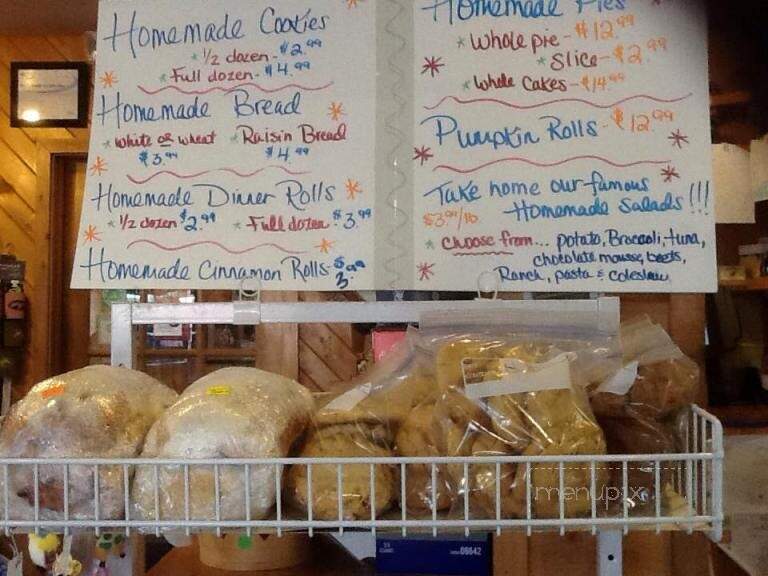 Homemade Cookies
* 1/2 dozen - $2.99
* Full dozen - $4.99
Homemade Bread
* White or wheat * Raisin Bread
$3.99 $4.99
Homemade Dinner Rolls
* 1/2 dozen $2.99 * Full dozen - $3.99
Homemade Cinnamon Rolls - $3.99
Homemade Pies
* Whole pie - $12.99
* Slice - $2.99
* Whole Cakes - $14.99
Pumpkin Rolls - $12.99
Take home our famous
$3.99/lb Homemade Salads!!!
* Choose from... potato, Broccoli, tuna,
chocolate mousse, beets,
Ranch, pasta & coleslaw
menupix